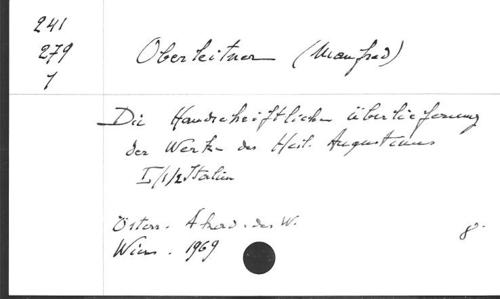 241
279
7
Oberleitner (Manfred)
Die Handschriftliche Überlieferung
der Werke des Heil. Augustinus
I/1/2 Italien
Österr. Akad. des W.
Wien. 1969
8.